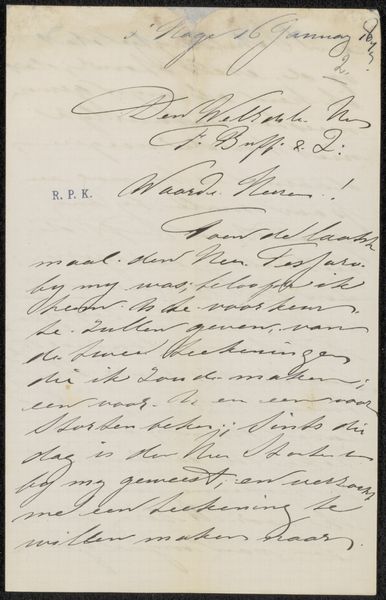 s' Hage 16 Januay 1875.
2
Den WelEdele Hn
F. Buffa & Z:
R. P. K.
Waarde Heeren!
Toen de laatste
maal den Heer Tessaro
by my was, beloofde ik
hem U de voorkeur
te zullen geven, van
de twee teekeningen
die ik zoude maken,
een voor U en een voor
Stortenbeker; sints die
dag is der Heer Storten
by my geweest, en verzocht
me een teekening te
willen maken naar